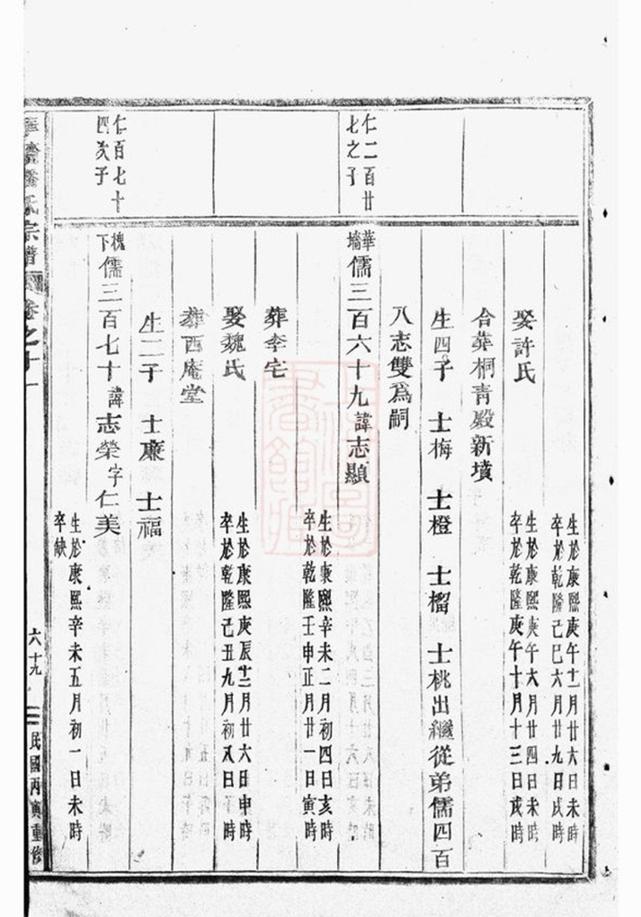 生於康熙庚午十二月廿六日未時
卒於乾隆己巳六月廿九日戌時
娶許氏
生於康熙庚午六月廿四日未時
卒於乾隆庚午十月十三日戌時
合葬桐青殿新墳
生四子 士梅 士橙 士榴 士桃出繼從弟儒四百
八志雙為嗣
仁二百廿
七之子
華墻 儒三百六十九諱志顯
生於康熙辛未二月初四日亥時
卒於乾隆壬申正月廿一日寅時
葬李宅
娶魏氏
生於康熙庚辰十二月廿六日申時
卒於乾隆己丑九月初八日子時
葬西庵堂
生二子 士廉 士福
仁百七十
四次子
槐下 儒三百七十諱志榮字仁美
生於康熙辛未五月初一日未時
卒缺
氏宗譜 卷之十一
六十九
民國丙寅重修